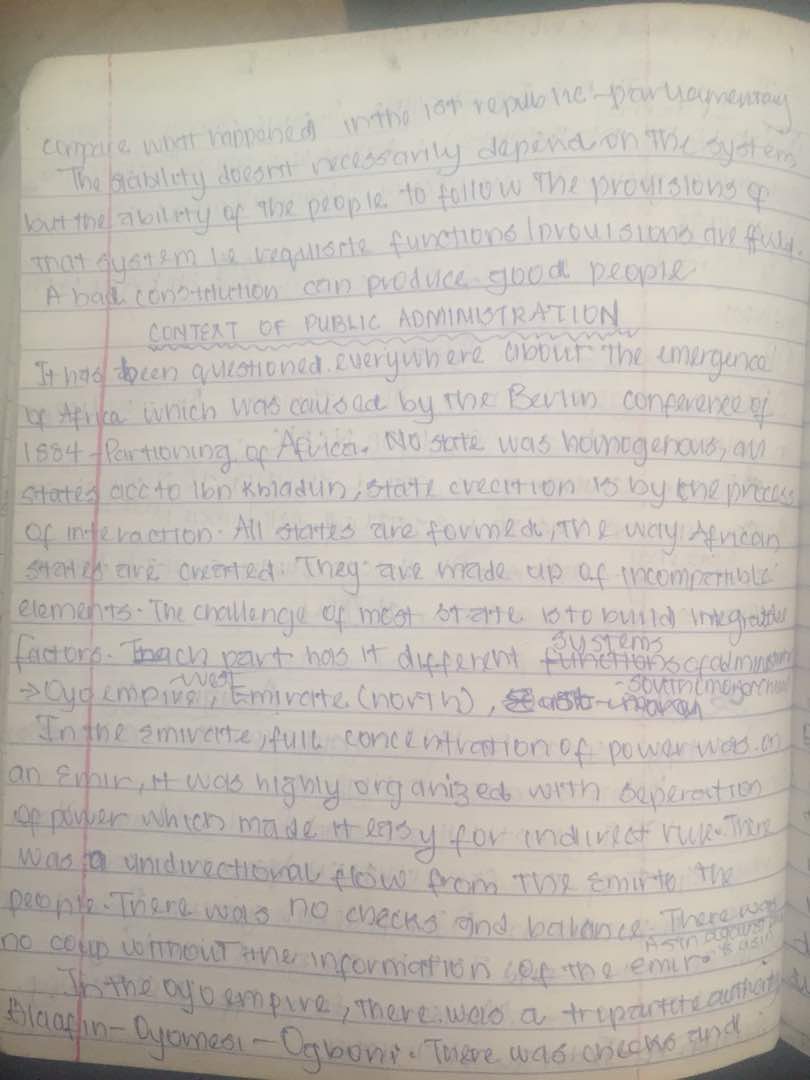 compare what happened in the 1st republic - parliamentary
The stability doesn't necessarily depend on the system
but the ability of the people to follow the provisions of
that system i.e requisite functions/provisions are
A bad constitution can produce good people
CONTEXT OF PUBLIC ADMINISTRATION
It has been questioned everywhere about the emergence
of Africa which was caused by the Berlin conference of
1884 - Partioning of Africa. No state was homogenous, all
states acc to Ibn Khladun, state creation is by the process
of interaction. All states are formed, the way African
states are created. They are made up of incompatible
elements. The challenge of most state is to build integrative
factors. Each part has it different systems of
→ Oyo empire, west Emirate (north),
In the Emirate, full concentration of power was on
an Emir, it was highly organized with seperation
of power which made it easy for indirect rule. There
was a unidirectional flow from the Emir to the
people. There was no checks and balance. There was
no coup without the information of the emir.
In the oyo empire, there was a tripartite authority
Alaafin - Oyomesi - Ogboni. There was checks and